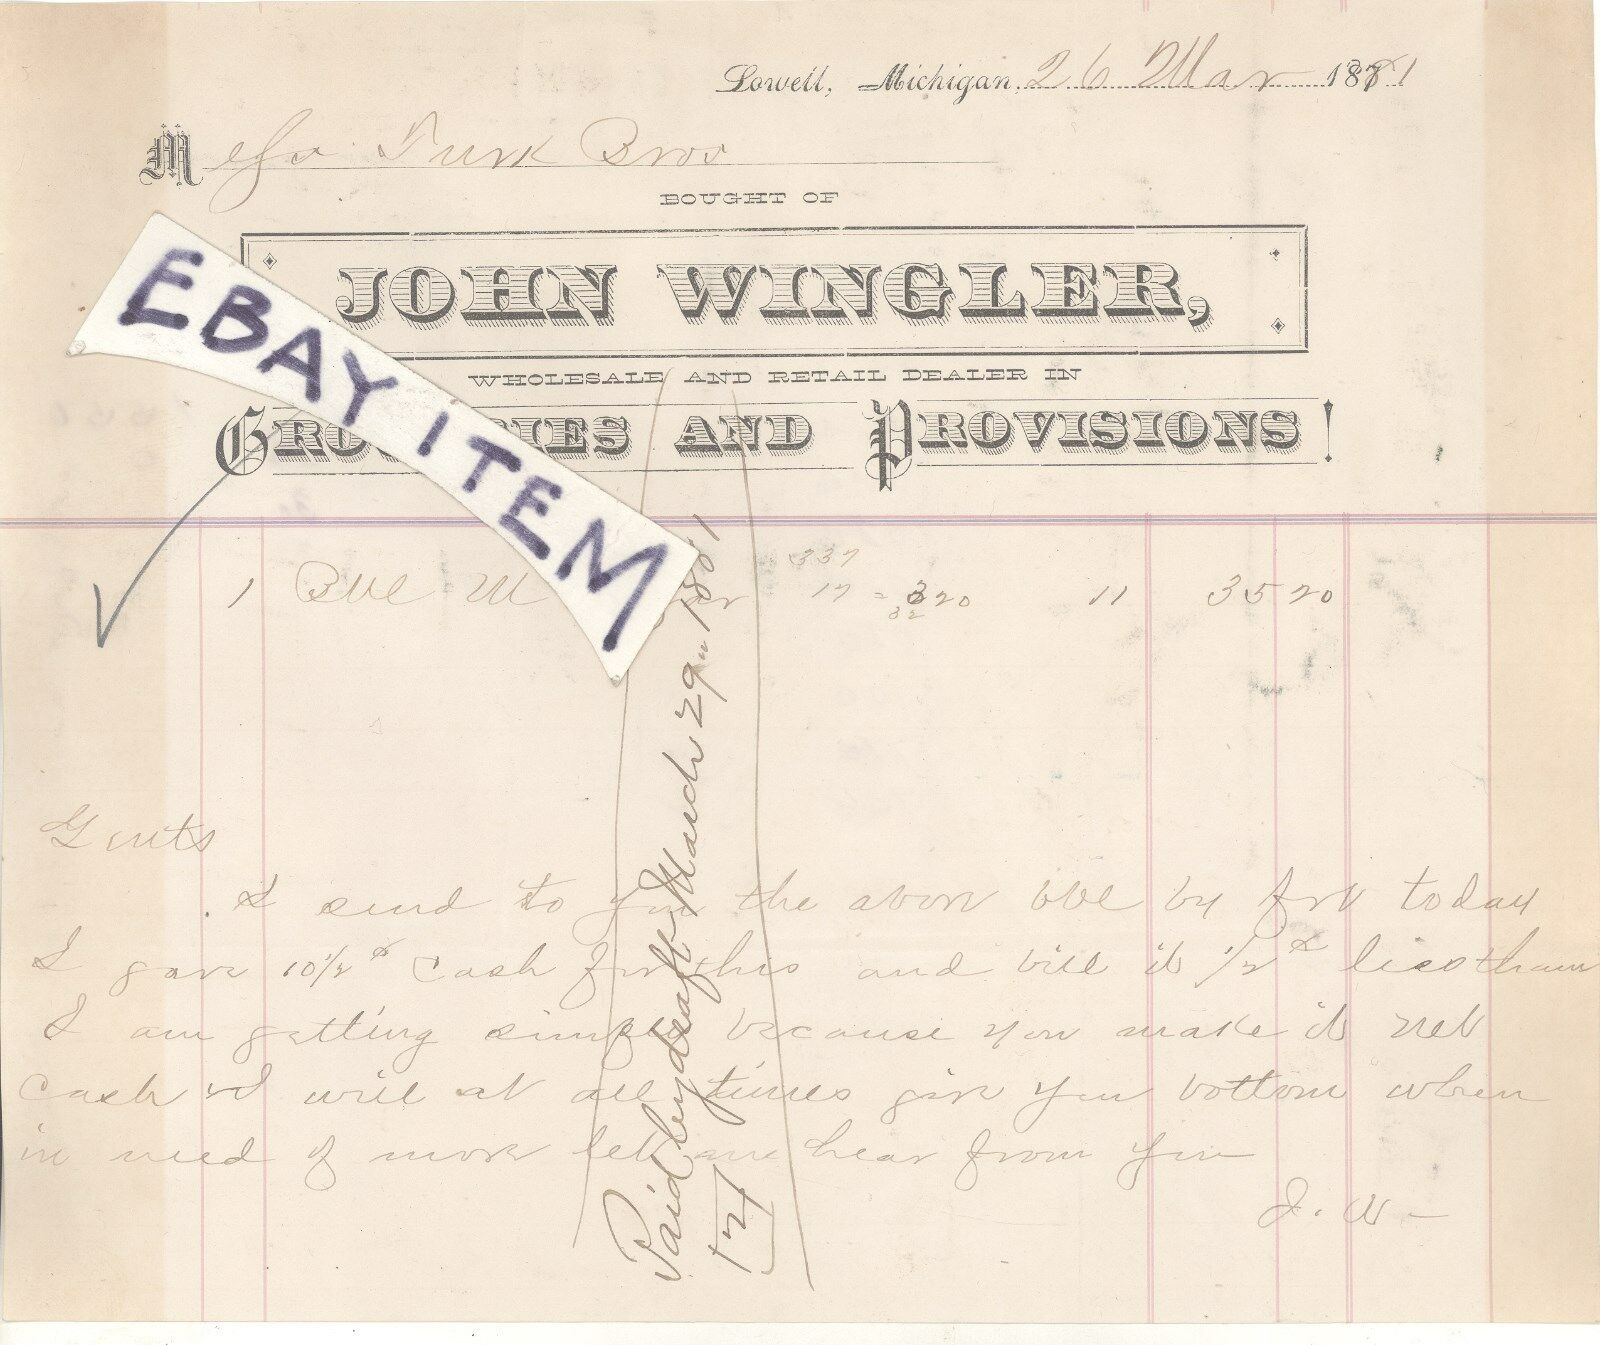 Lowell, Michigan, 26 Mar 1881
Messrs Turk Bros
BOUGHT OF
JOHN WINGLER,
WHOLESALE AND RETAIL DEALER IN
GROCERIES AND PROVISIONS!
EBAY ITEM
337
1 Bbl 17 = 320 11 35 20
32
Gents
I send to you the above bbl by frt today
I gave 10 1/2 ¢ cash for this and bill it 1/2 ¢ less than
I am getting simply because you make it net
cash & I will at all times give you bottom when
in need of more let me hear from you
J. W -
Paid by draft March 29" 1881